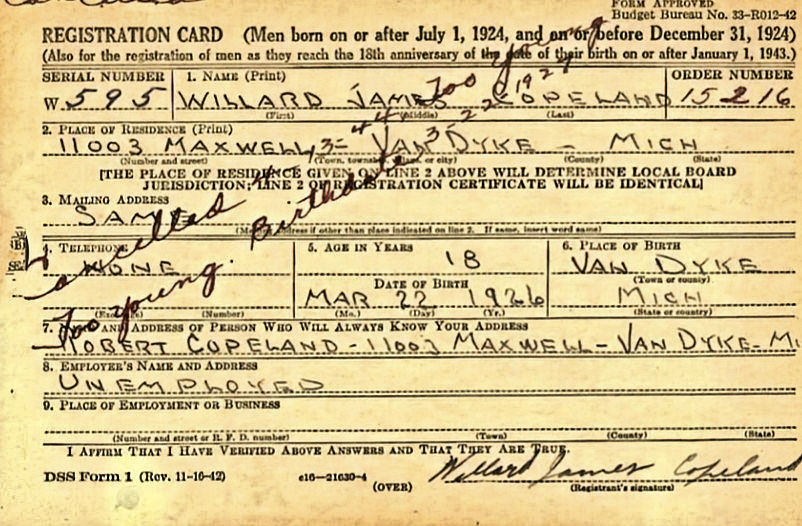 FORM APPROVED
Budget Bureau No. 33-R012-42
REGISTRATION CARD (Men born on or after July 1, 1924, and on or before December 31, 1924)
(Also for the registration of men as they reach the 18th anniversary of the date of their birth on or after January 1, 1943.)
SERIAL NUMBER 1. NAME (Print) ORDER NUMBER
too young
W 595 WILLARD JAMES COPELAND 15216
(First) (Middle) (Last)
2. PLACE OF RESIDENCE (Print)
11003 MAXWELL, VAN DYKE - MICH
(Number and street) (Town, township, or city) (County) (State)
[THE PLACE OF RESIDENCE GIVEN ON LINE 2 ABOVE WILL DETERMINE LOCAL BOARD
JURISDICTION; LINE 2 OF REGISTRATION CERTIFICATE WILL BE IDENTICAL]
3. MAILING ADDRESS
SAME
(Mailing address if other than place indicated on line 2. If same, insert word same)
Cancelled
too young. Birthday 3-22-1927
4. TELEPHONE 5. AGE IN YEARS 6. PLACE OF BIRTH
NONE 18 VAN DYKE
(Town or county)
DATE OF BIRTH
MAR 22 1926 MICH
(Exchange) (Number) (Mo.) (Day) (Yr.) (State or country)
7. NAME AND ADDRESS OF PERSON WHO WILL ALWAYS KNOW YOUR ADDRESS
ROBERT COPELAND - 11003 MAXWELL - VAN DYKE - MI
8. EMPLOYER'S NAME AND ADDRESS
UNEMPLOYED
9. PLACE OF EMPLOYMENT OR BUSINESS
(Number and street or R. F. D. number) (Town) (County) (State)
I AFFIRM THAT I HAVE VERIFIED ABOVE ANSWERS AND THAT THEY ARE TRUE.
DSS Form 1 (Rev. 11-16-42) e16-21630-4 Willard James Copeland
(OVER) (Registrant's signature)